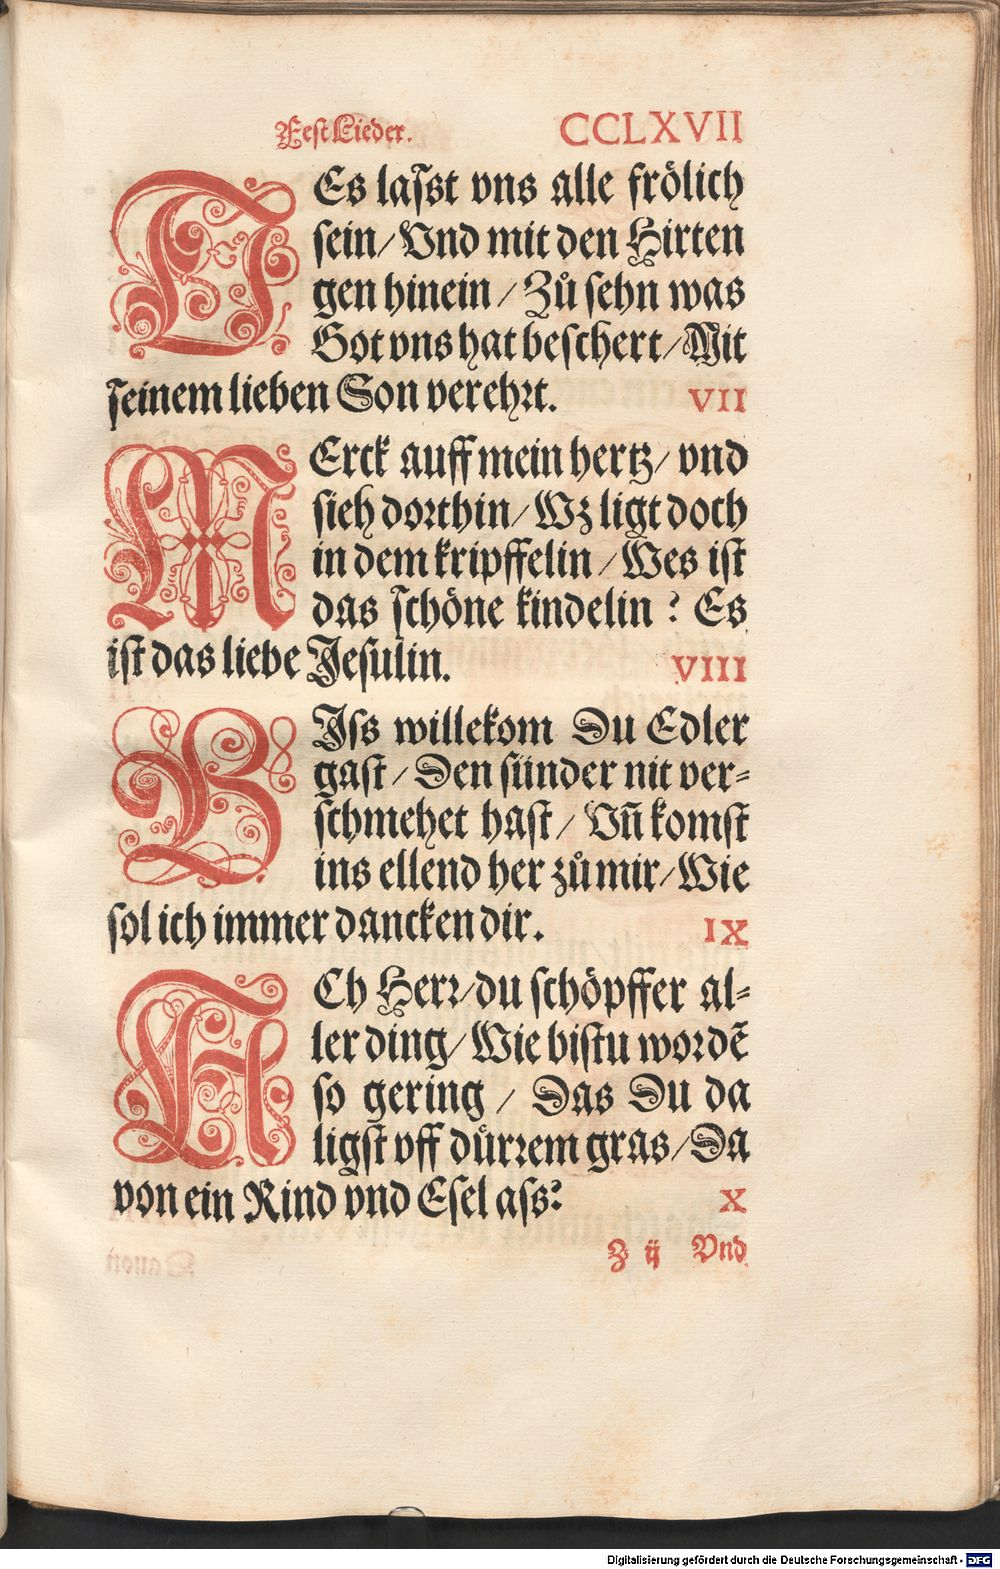 Fest Lieder. CCLXVII
DEs laſst vns alle frölich
sein/ Vnd mit den Hirten
gen hinein / Zů ſehn was
Got vns hat beſchert/ Mit
ſeinem lieben Son verehꝛt. VII
MErck auff mein hertz/ vnd
sieh doꝛthin/ Wz ligt doch
in dem kripffelin / Wes iſt
das ſchöne kindelin ? Es
iſt das liebe Jeſulin. VIII
BIſs willekom Du Edler
gaſt / Den ſünder nit ver⸗
ſchmehet haſt / Vn̄ komſt
ins ellend her zů mir/ Wie
ſol ich immer dancken dir. IX
ACh Herꝛ/ du ſchöpffer al⸗
ler ding/ Wie biſtu woꝛdē
ſo gering / Das Du da
ligſt vff dürꝛem gras/ Da
von ein Rind vnd Eſel aſs? X
Z ij Vnd
Digitalisierung gefördert durch die Deutsche Forschungsgemeinschaft - DFG